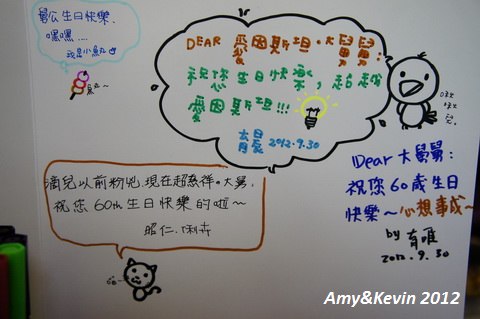 舅公生日快樂,
嘿嘿....
我是小魚丸
魚丸~
DEAR 愛因斯坦·大舅舅:
祝您生日快樂,超越
愛因斯坦!!!
2012.9.30
Dear 大舅舅:
祝您60歲生日
快樂~心想事成~
by 育唯
2012.9.30
滴兒以前粉兇,現在超慈祥。大舅,
祝您60th生日快樂的啦~
昭仁.
Amy&Kevin 2012